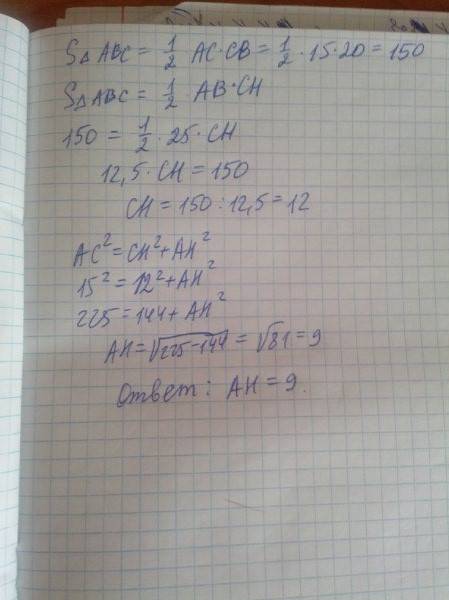 S△ABC = 1/2 AC·CB = 1/2 · 15·20 = 150
S△ABC = 1/2 AB·CH
150 = 1/2 · 25 · CH
12,5 · CH = 150
CH = 150 : 12,5 = 12
AC² = CH² + AH²
15² = 12² + AH²
225 = 144 + AH²
AH = √225-144 = √81 = 9
Ответ : AH = 9